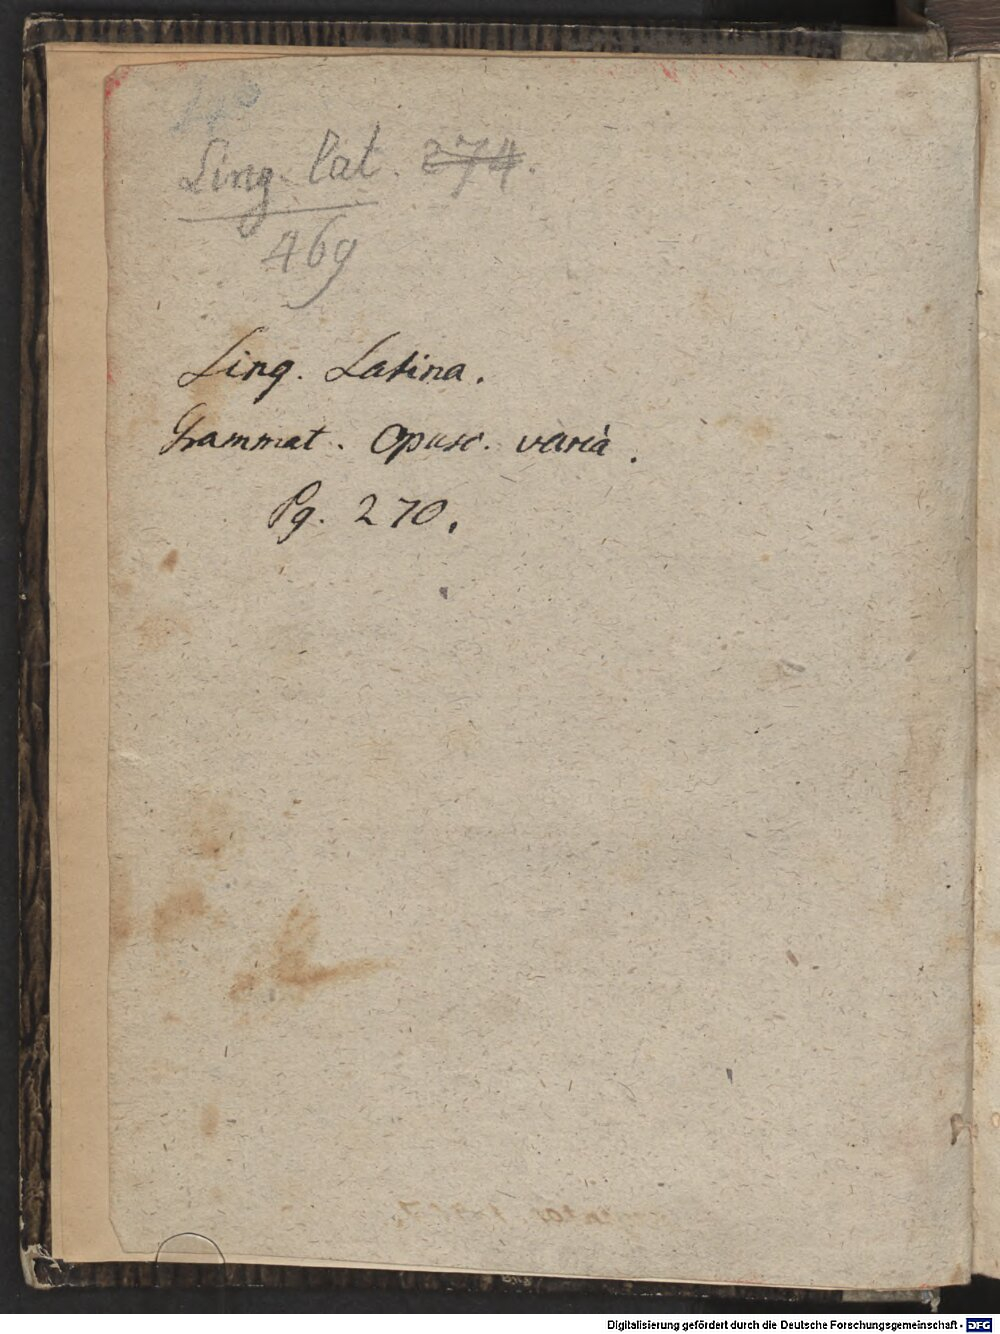 Ling. lat. 274.
469
Ling. Latina.
Grammat. Opusc. varia.
Pg. 270.
Digitalisierung gefördert durch die Deutsche Forschungsgemeinschaft - DFG